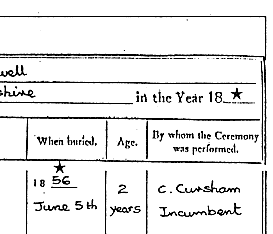 well
shire in the Year 18 ★
When buried. Age. By whom the Ceremony
was performed.
★
18 56 2 C. Cursham
June 5th years Incumbent